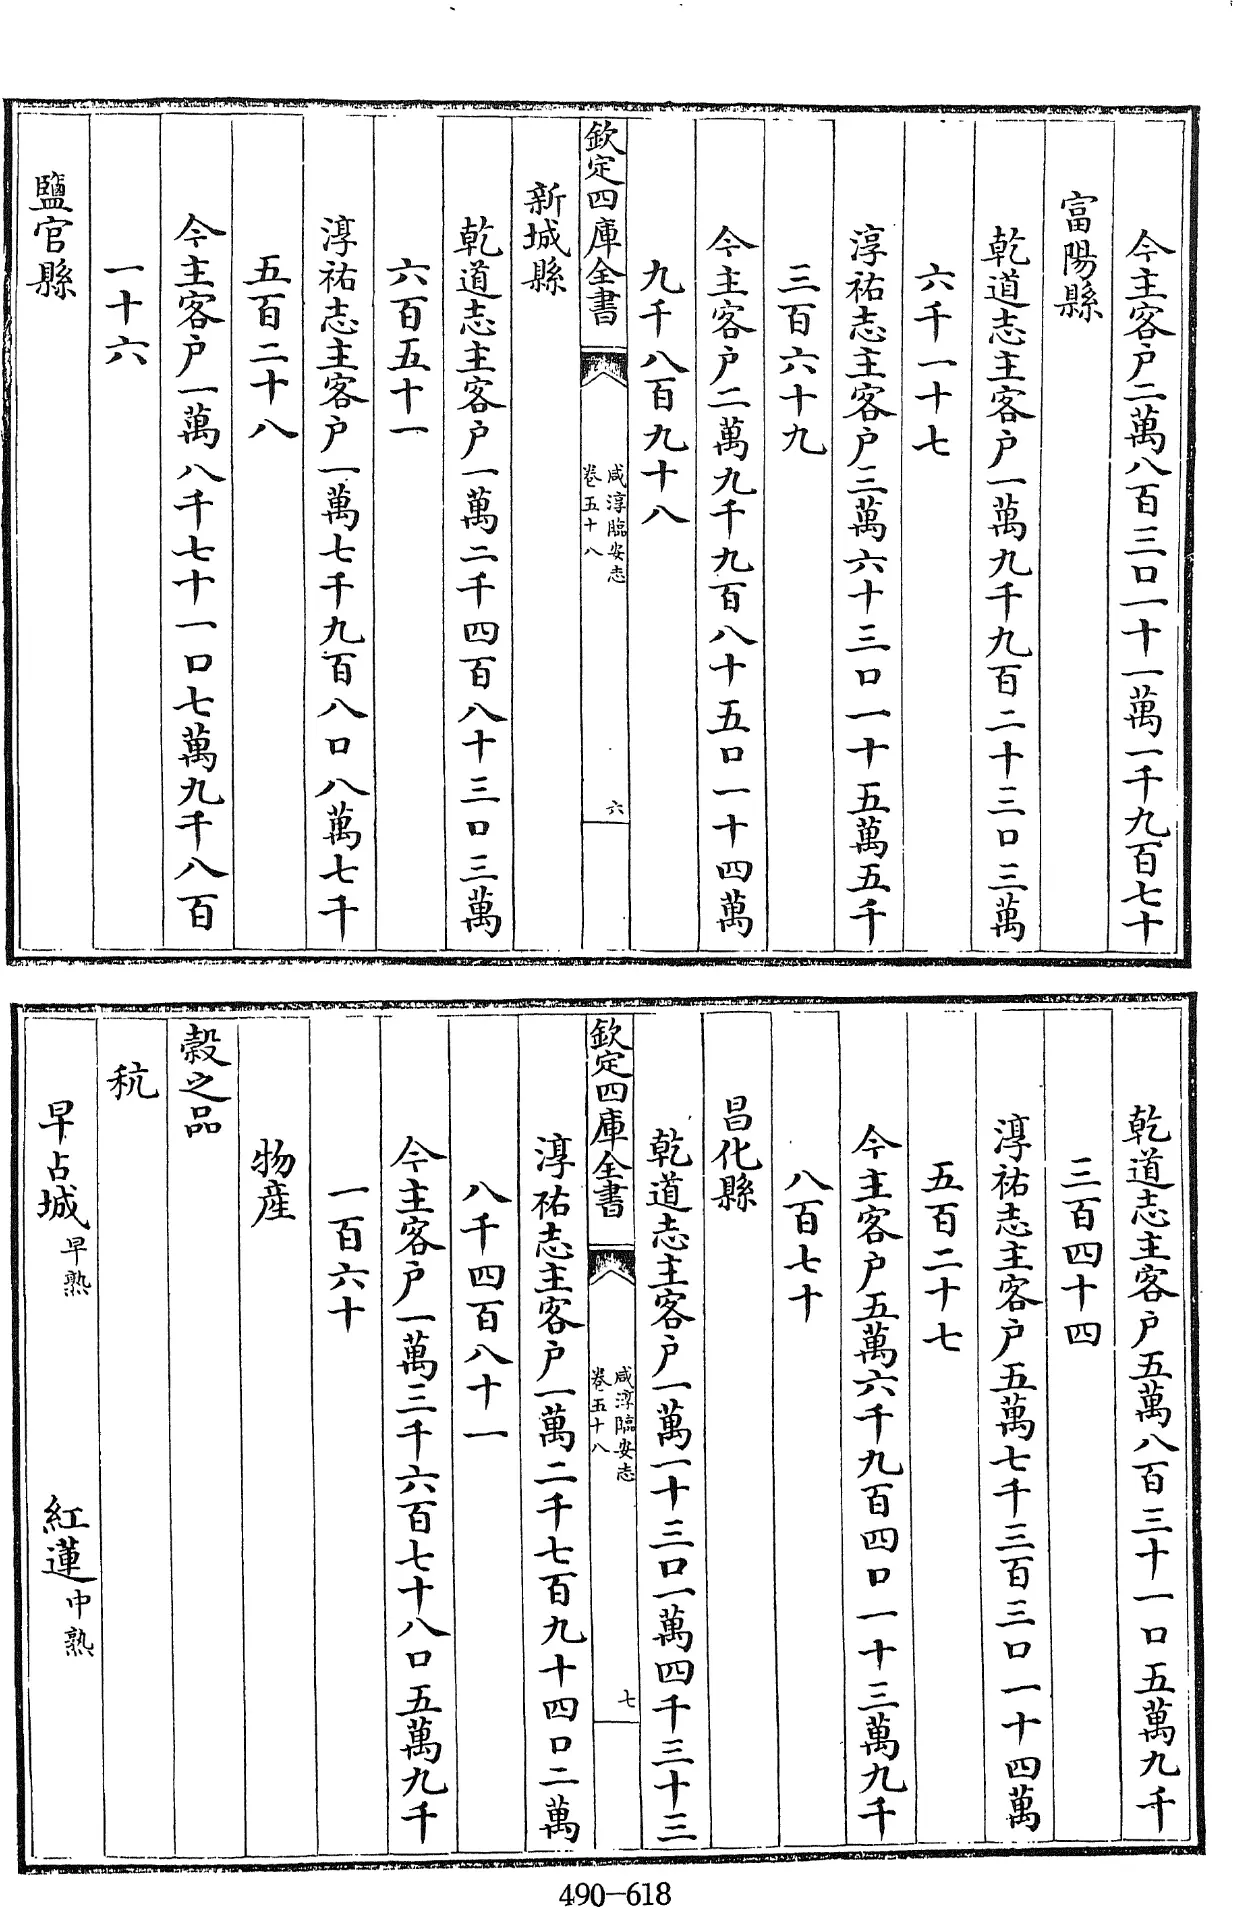 今主客户二萬八百三口一十一萬一千九百七十
富陽縣
乾道志主客户一萬九千九百二十三口三萬
六千一十七
淳祐志主客户三萬六十三口一十五萬五千
三百六十九
今主客户二萬九千九百八十五口一十四萬
九千八百九十八
欽定四庫全書
咸淳臨安志
卷五十八
六
新城縣
乾道志主客户一萬二千四百八十三口三萬
六百五十一
淳祐志主客户一萬七千九百八口八萬七千
五百二十八
今主客户一萬八千七十一口七萬九千八百
一十六
鹽官縣
乾道志主客户五萬八百三十一口五萬九千
三百四十四
淳祐志主客户五萬七千三百三口一十四萬
五百二十七
今主客户五萬六千九百四口一十三萬九千
八百七十
昌化縣
乾道志主客户一萬一十三口一萬四千三十三
欽定四庫全書
咸淳臨安志
卷五十八
七
淳祐志主客户一萬二千七百九十四口二萬
八千四百八十一
今主客户一萬三千六百七十八口五萬九千
一百六十
物産
榖之品
秔
早占城早熟 紅蓮中熟
490-618